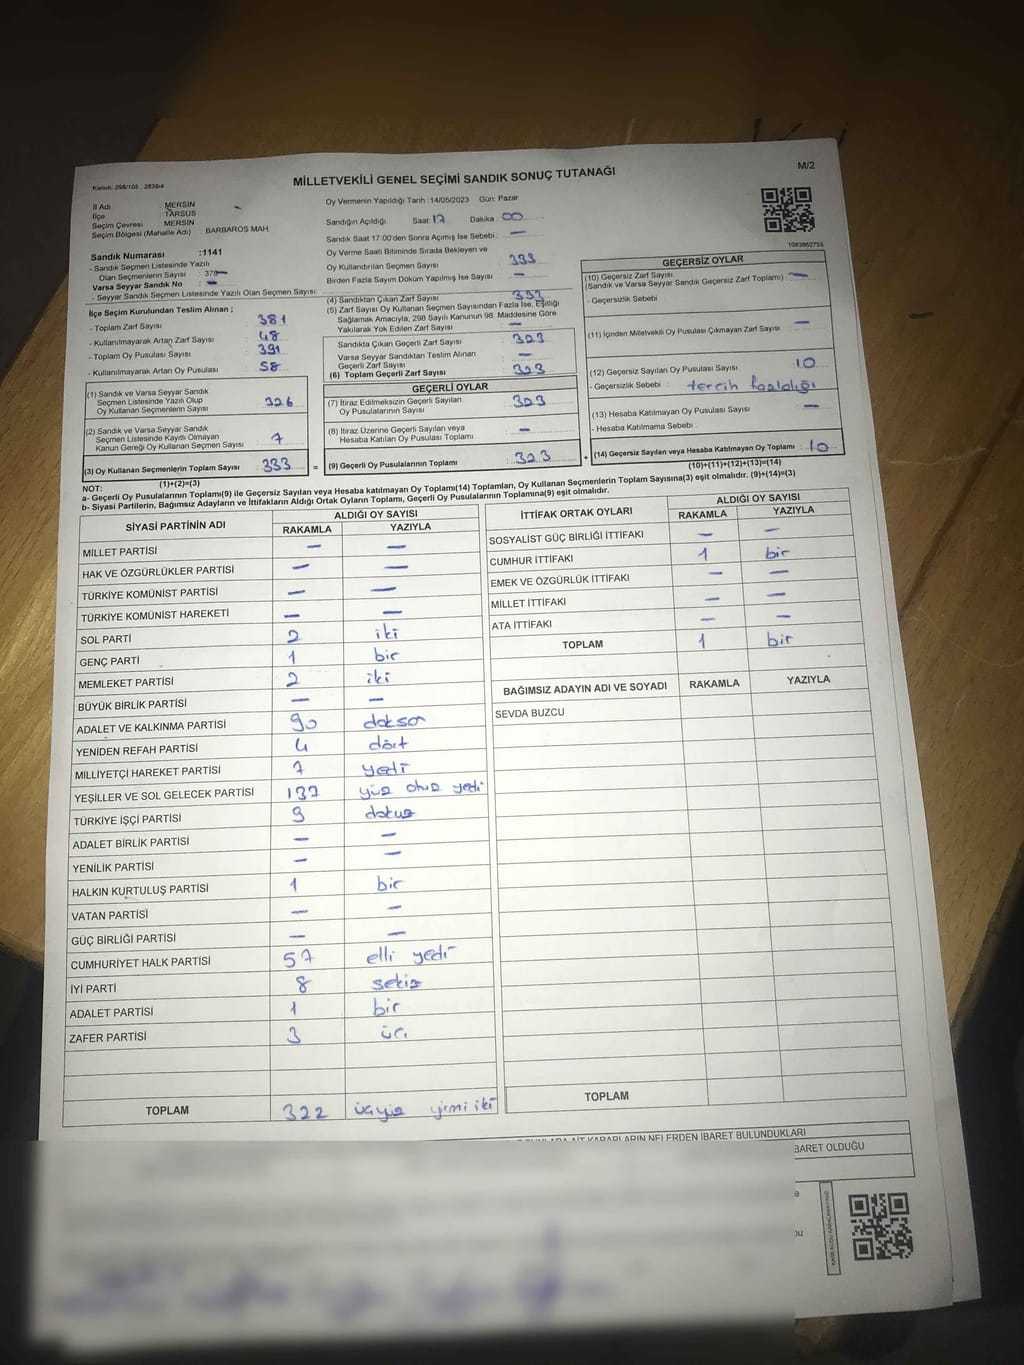 Kanun, 298/105 , 2839/4
MİLLETVEKİLİ GENEL SEÇİMİ SANDIK SONUÇ TUTANAĞI
M/2
İl Adı MERSİN
İlçe TARSUS
Seçim Çevresi MERSİN
Seçim Bölgesi (Mahalle Adı) : BARBAROS MAH.
Sandık Numarası :1141
- Sandık Seçmen Listesinde Yazılı
Olan Seçmenlerin Sayısı : 378
Varsa Seyyar Sandık No : –
- Seyyar Sandık Seçmen Listesinde Yazılı Olan Seçmen Sayısı:
İlçe Seçim Kurulundan Teslim Alınan ;
- Toplam Zarf Sayısı : 381
- Kullanılmayarak Artan Zarf Sayısı : 48
- Toplam Oy Pusulası Sayısı : 391
- Kullanılmayarak Artan Oy Pusulası : 58
(1) Sandık ve Varsa Seyyar Sandık
Seçmen Listesinde Yazılı Olup
Oy Kullanan Seçmenlerin Sayısı : 326
(2) Sandık ve Varsa Seyyar Sandık
Seçmen Listesinde Kaydı Olmayan
Kanun Gereği Oy Kullanan Seçmen Sayısı : 7
(3) Oy Kullanan Seçmenlerin Toplam Sayısı : 333 =
(1)+(2)=(3)
Oy Vermenin Yapıldığı Tarih :14/05/2023 Gün: Pazar
Sandığın Açıldığı Saat: 17 Dakika: 00
Sandık Saat 17:00'den Sonra Açımış İse Sebebi : –
Oy Verme Saati Bitiminde Sırada Bekleyen ve
Oy Kullandırılan Seçmen Sayısı : 333
Birden Fazla Sayım Döküm Yapılmış İse Sayısı : –
(4) Sandıktan Çıkan Zarf Sayısı :
(5) Zarf Sayısı Oy Kullanan Seçmen Sayısından Fazla İse, Eşitliği
Sağlamak Amacıyla, 298 Sayılı Kanunun 98. Maddesine Göre
Yakılarak Yok Edilen Zarf Sayısı : –
Sandıkta Çıkan Geçerli Zarf Sayısı : 323
Varsa Seyyar Sandıktan Teslim Alınan
Geçerli Zarf Sayısı : –
(6) Toplam Geçerli Zarf Sayısı : 323
GEÇERLİ OYLAR
(7) İtiraz Edilmeksizin Geçerli Sayılan
Oy Pusulalarının Sayısı : 323
(8) İtiraz Üzerine Geçerli Sayılan veya
Hesaba Katılan Oy Pusulası Toplamı : –
(9) Geçerli Oy Pusulalarının Toplamı : 323 +
1083862755
GEÇERSİZ OYLAR
(10) Geçersiz Zarf Sayısı : –
(Sandık ve Varsa Seyyar Sandık Geçersiz Zarf Toplamı)
- Geçersizlik Sebebi :
(11) İçinden Milletvekili Oy Pusulası Çıkmayan Zarf Sayısı : –
(12) Geçersiz Sayılan Oy Pusulası Sayısı : 10
- Geçersizlik Sebebi : tercih fazlalığı
(13) Hesaba Katılmayan Oy Pusulası Sayısı : –
- Hesaba Katılmama Sebebi :
(14) Geçersiz Sayılan veya Hesaba Katılmayan Oy Toplamı : 10
(10)+(11)+(12)+(13)=(14)
NOT:
a- Geçerli Oy Pusulalarının Toplamı(9) ile Geçersiz Sayılan veya Hesaba katılmayan Oy Toplamı(14) Toplamları, Oy Kullanan Seçmenlerin Toplam Sayısına(3) eşit olmalıdır. (9)+(14)=(3)
b- Siyasi Partilerin, Bağımsız Adayların ve İttifakların Aldığı Ortak Oyların Toplamı, Geçerli Oy Pusulalarının Toplamına(9) eşit olmalıdır.
SİYASİ PARTİNİN ADI ALDIĞI OY SAYISI
RAKAMLA YAZIYLA
MİLLET PARTİSİ – –
HAK VE ÖZGÜRLÜKLER PARTİSİ – –
TÜRKİYE KOMÜNİST PARTİSİ – –
TÜRKİYE KOMÜNİST HAREKETİ – –
SOL PARTİ 2 iki
GENÇ PARTİ 1 bir
MEMLEKET PARTİSİ 2 iki
BÜYÜK BİRLİK PARTİSİ – –
ADALET VE KALKINMA PARTİSİ 90 doksan
YENİDEN REFAH PARTİSİ 4 dört
MİLLİYETÇİ HAREKET PARTİSİ 7 yedi
YEŞİLLER VE SOL GELECEK PARTİSİ 137 yüz otuz yedi
TÜRKİYE İŞÇİ PARTİSİ 9 dokuz
ADALET BİRLİK PARTİSİ – –
YENİLİK PARTİSİ – –
HALKIN KURTULUŞ PARTİSİ 1 bir
VATAN PARTİSİ – –
GÜÇ BİRLİĞİ PARTİSİ – –
CUMHURİYET HALK PARTİSİ 57 elli yedi
İYİ PARTİ 8 sekiz
ADALET PARTİSİ 1 bir
ZAFER PARTİSİ 3 üç
TOPLAM 322 üçyüz yirmi iki
İTTİFAK ORTAK OYLARI ALDIĞI OY SAYISI
RAKAMLA YAZIYLA
SOSYALİST GÜÇ BİRLİĞİ İTTİFAKI – –
CUMHUR İTTİFAKI 1 bir
EMEK VE ÖZGÜRLÜK İTTİFAKI – –
MİLLET İTTİFAKI – –
ATA İTTİFAKI – –
TOPLAM 1 bir
BAĞIMSIZ ADAYIN ADI VE SOYADI RAKAMLA YAZIYLA
SEVDA BUZCU
TOPLAM
KARARLARIN NELERDEN İBARET BULUNDUKLARI
BARET OLDUĞU